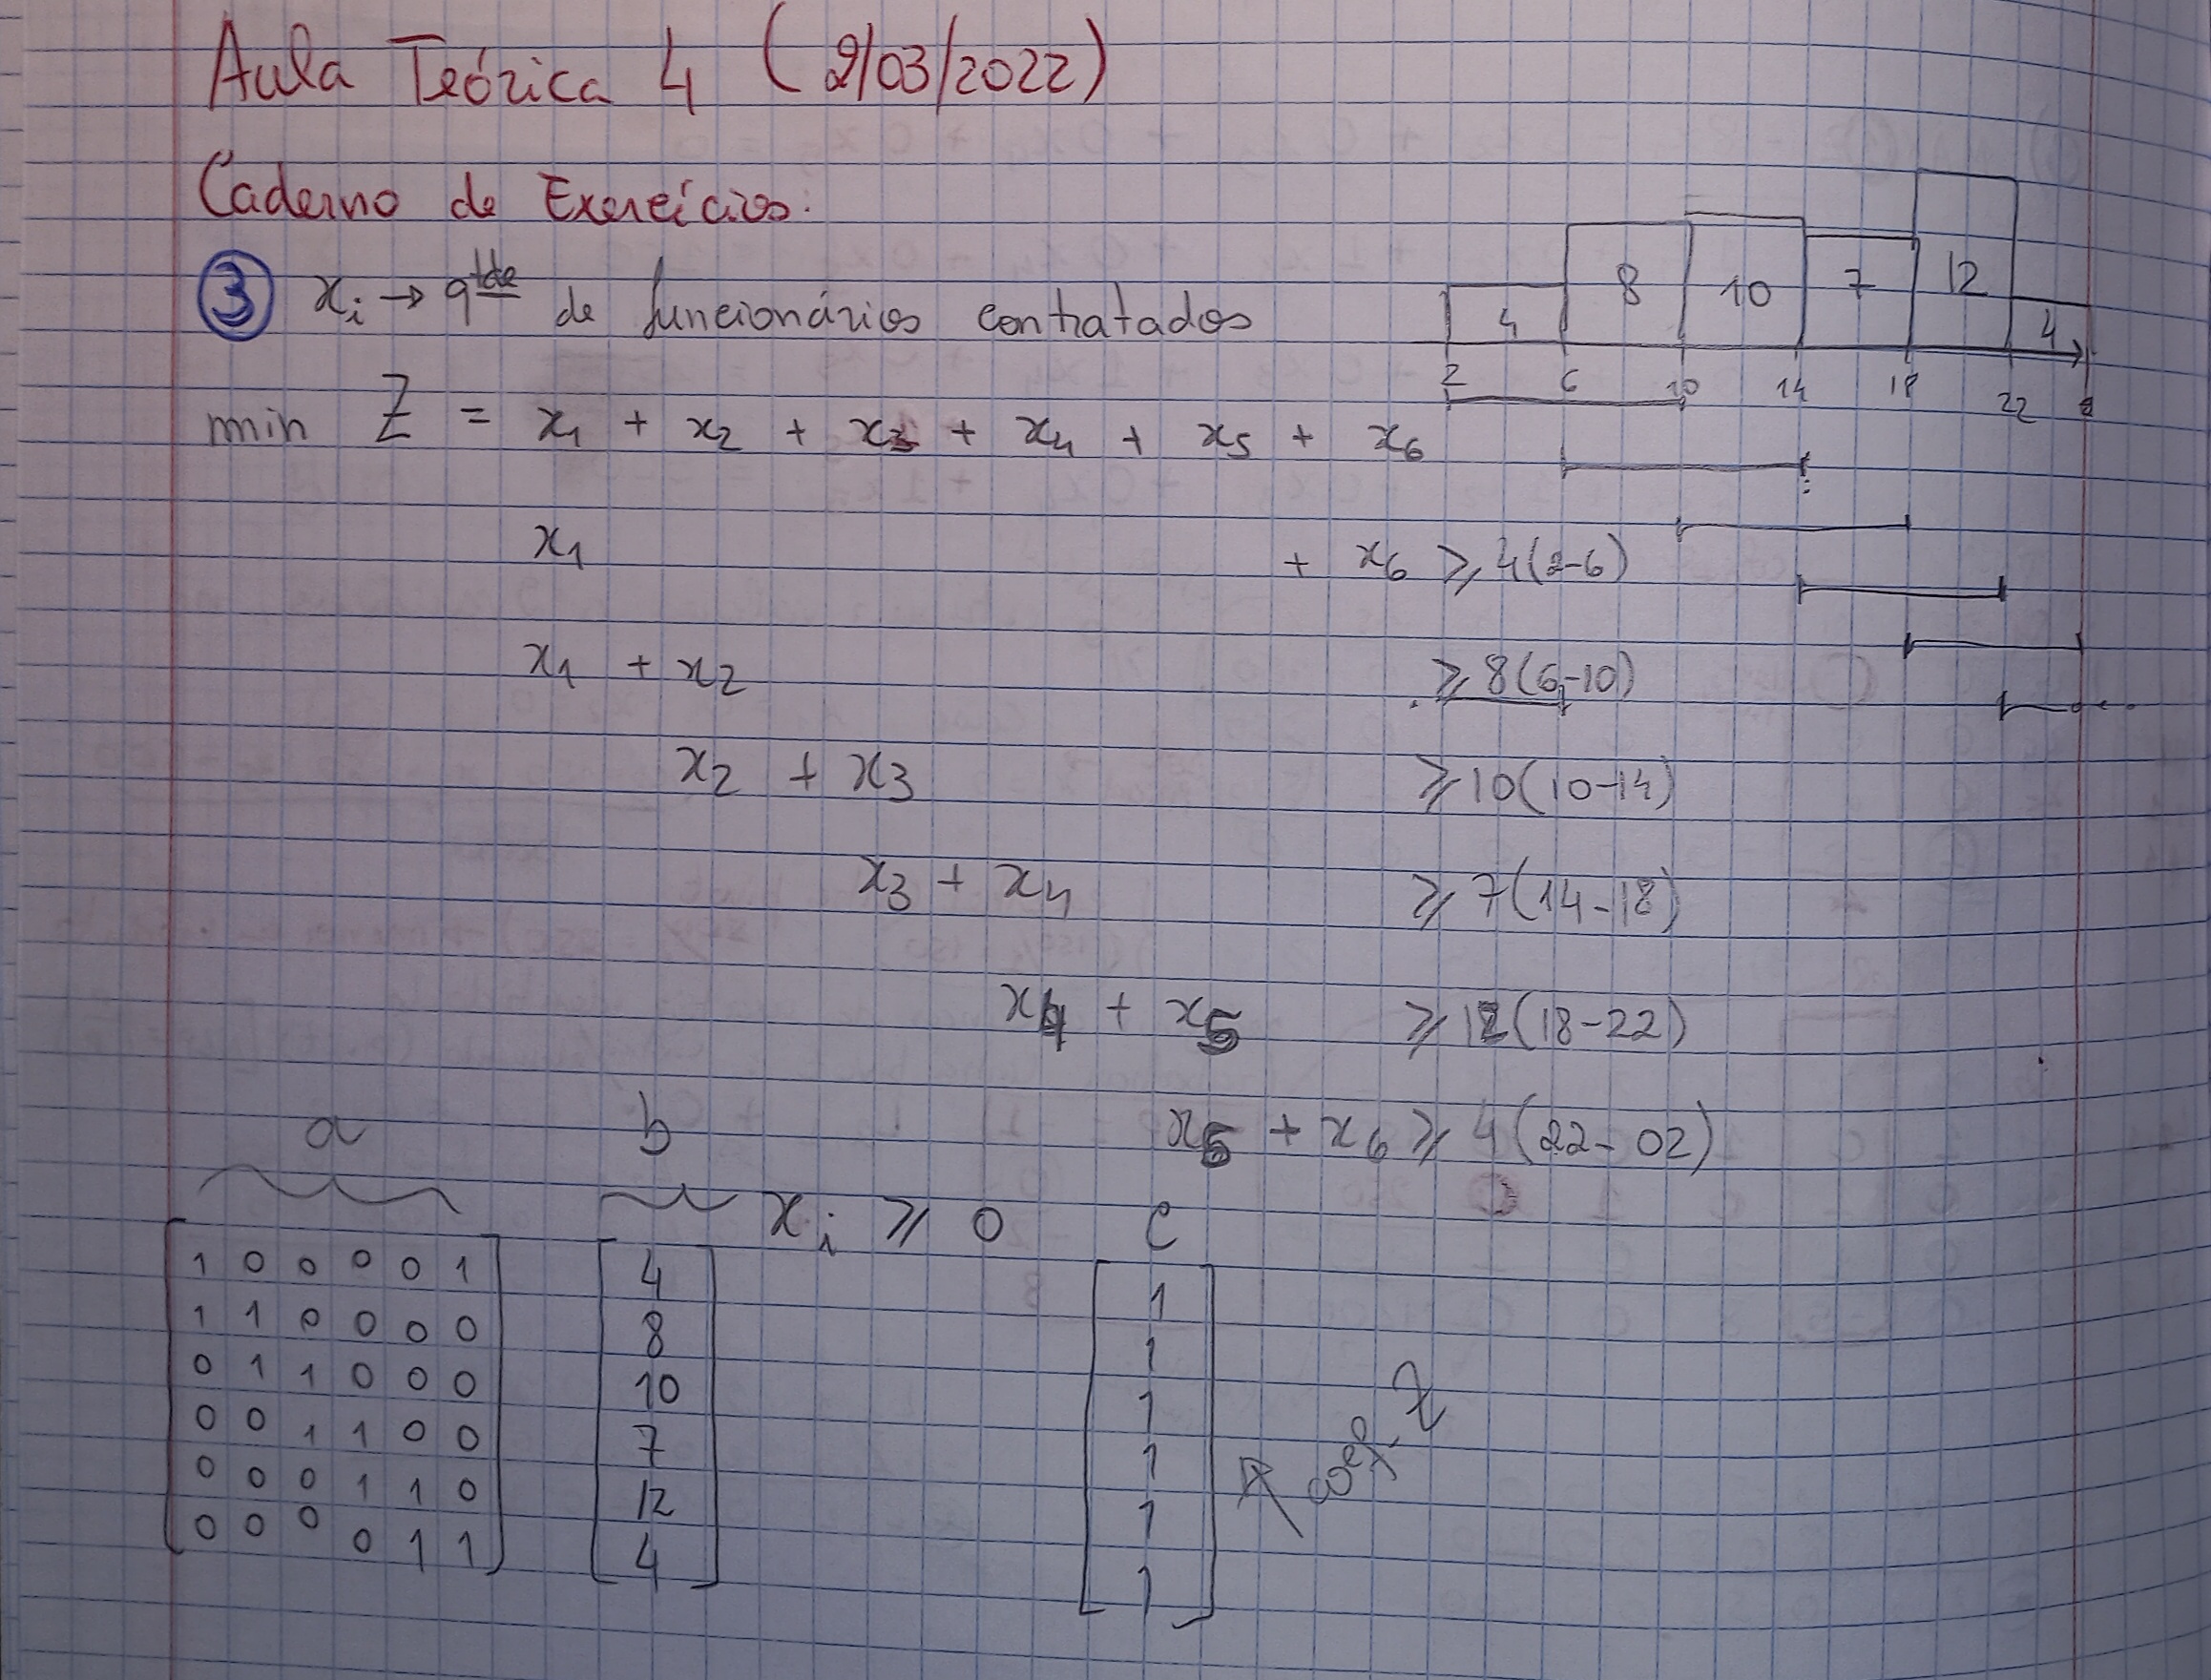 Aula Teórica 4 (2/03/2022)
Caderno de Exercícios:
③ xᵢ → qtde de funcionários contratados
4 8 10 7 12 4
2 6 10 14 18 22 2
min Z = x₁ + x₂ + x₃ + x₄ + x₅ + x₆
x₁ + x₆ ⩾ 4 (2-6)
x₁ + x₂ ⩾ 8 (6-10)
x₂ + x₃ ⩾ 10 (10-14)
x₃ + x₄ ⩾ 7 (14-18)
x₄ + x₅ ⩾ 12 (18-22)
x₅ + x₆ ⩾ 4 (22-02)
xᵢ ⩾ 0
a
1 0 0 0 0 1
1 1 0 0 0 0
0 1 1 0 0 0
0 0 1 1 0 0
0 0 0 1 1 0
0 0 0 0 1 1
b
4
8
10
7
12
4
c
1
1
1
1
1
1
coef. Z